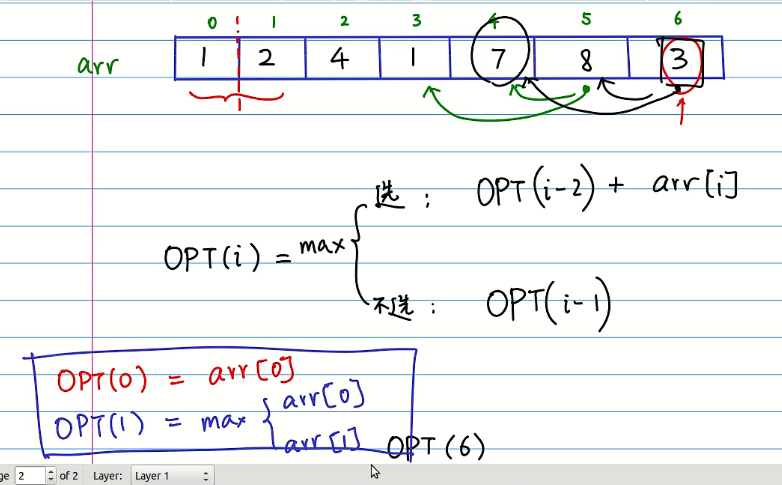 0 1 2 3 4 5 6
arr 1 2 4 1 7 8 3
选: OPT(i-2) + arr[i]
OPT(i) = max
不选: OPT(i-1)
OPT(0) = arr[0]
OPT(1) = max arr[0]
arr[1]
OPT(6)
ge 2 of 2 Layer: Layer 1